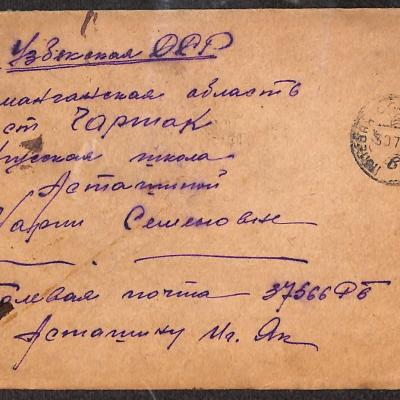 Узбекская ССР
манганская область
ст Чартак
русская школа
Асташиной
Марии Семеновне
Полевая почта 37566РБ
Асташину Иг. Як